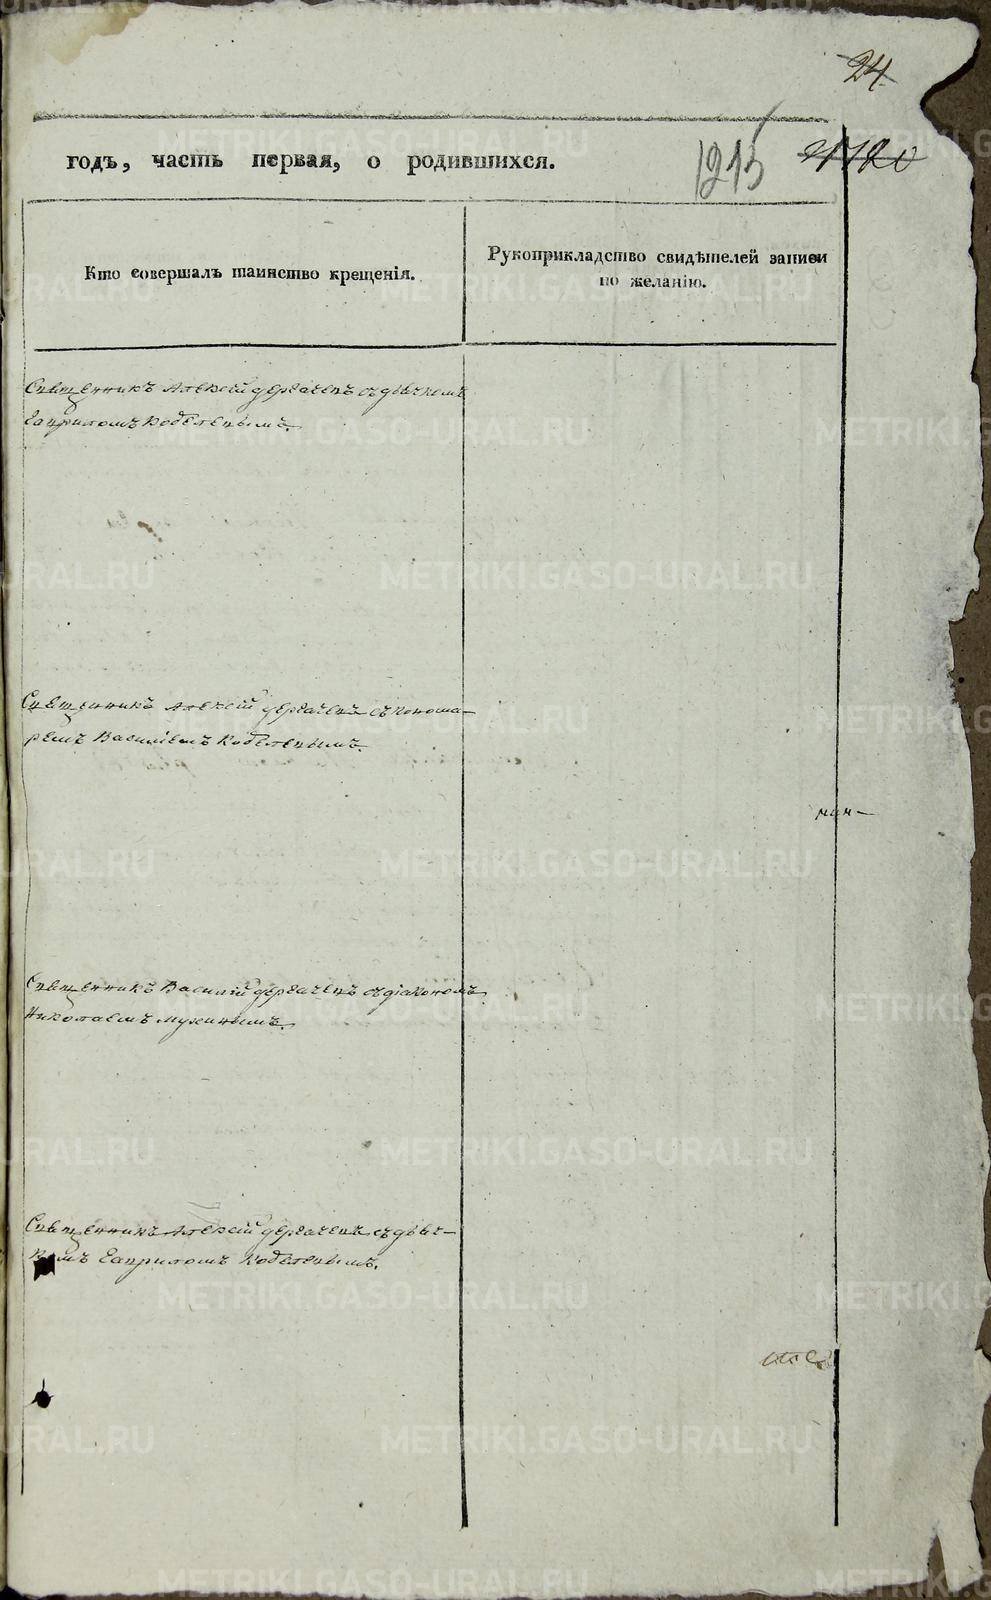 24.
годъ, часть первая, о родившихся.
1215
Кто совершалъ таинство крещенія.
Рукоприкладство свидѣтелей записи
по желанію.
Священникъ Алексій Дергачевъ съ дьячкомъ
Гавриломъ Кобелевымъ.
Священникъ Алексій Дергачевъ съ понома-
ремъ Василіемъ Кобелевымъ.
Священникъ Василій Дергачевъ съ діакономъ
Николаемъ Мухинымъ.
Священникъ Алексій Дергачевъ съ дьяч-
комъ Гавриломъ Кобелевымъ.
METRIKI.GASO-URAL.RU